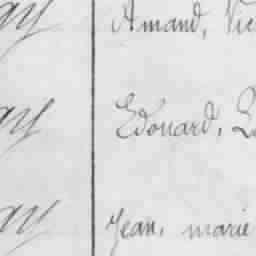 ay Amand, Vic
ay Edouard,
ay Jean, marie